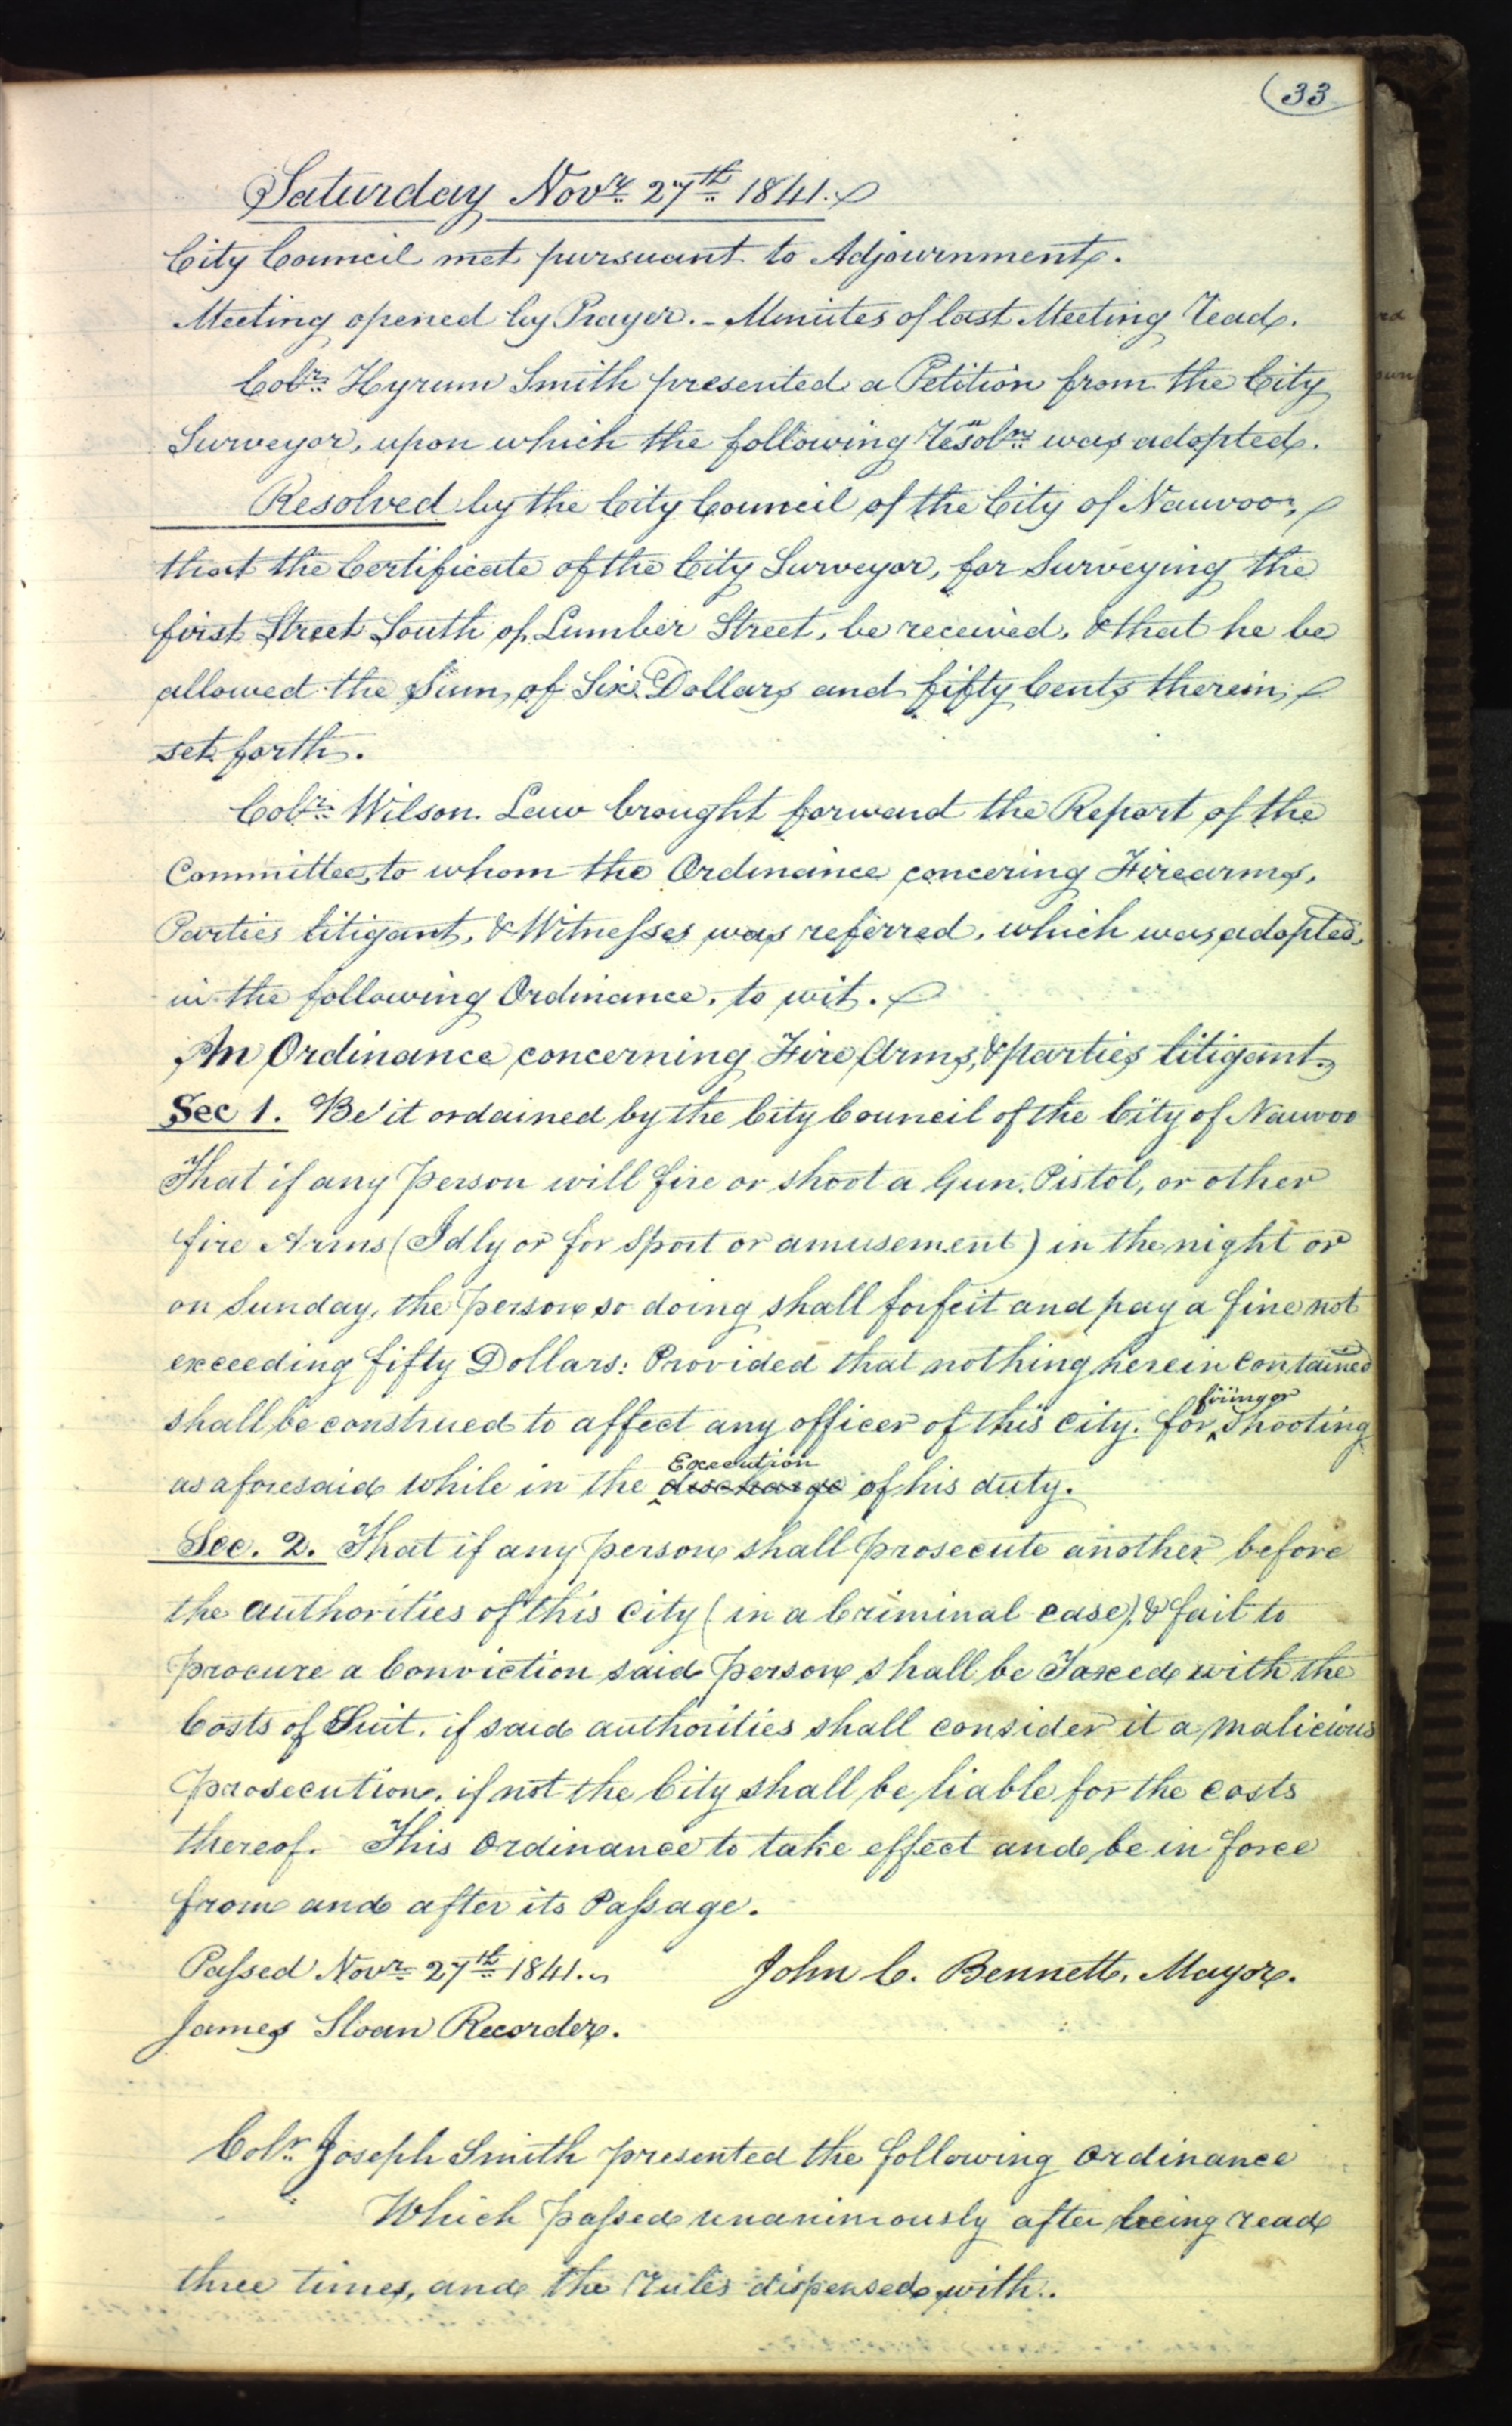 (33
Saturday Novr. 27th. 1841.
City Council met pursuant to Adjournment.
Meeting opened by Prayer. - Minutes of last Meeting read.
Colr. Hyrum Smith presented a Petition from the City
Surveyor, upon which the following resoln. was adopted.
Resolved by the City Council of the City of Nauvoo,
that the Certificate of the City Surveyor, for Surveying the
first Street South of Lumber Street, be received, & that he be
allowed the Sum, of Six Dollars and fifty Cents therein,
set forth.
Colr. Wilson Law brought forward the Report of the
Committee, to whom the Ordinance concering Firearms,
Parties litigant, & Witnesses was referred, which was adopted,
in the following Ordinance, to wit.
An Ordinance concerning Fire Arms, & parties litigant.
Sec 1. Be it ordained by the City Council of the City of Nauvoo
That if any person will fire or shoot a Gun, Pistol, or other
fire Arms (Idly or for sport or amusement) in the night or
on Sunday, the person so doing shall forfeit and pay a fine not
exceeding fifty Dollars: Provided that nothing herein contained
shall be construed to affect any officer of this city. for firing or shooting
as aforesaid while in the Execution discharge of his duty.
Sec. 2. That if any person shall prosecute another before
the authorities of this city (in a Criminal case) & fail to
procure a Conviction said person shall be Taxed with the
Costs of Suit, if said authorities shall consider it a malicious
prosecution, if not the City shall be liable for the costs
thereof. This ordinance to take effect and be in force
from and after its Passage.
Passed Novr. 27th. 1841. John C. Bennett, Mayor.
James Sloan Recorder.
Colr. Joseph Smith presented the following ordinance
Which passed unanimously after being read
three times, and the rules dispensed with.